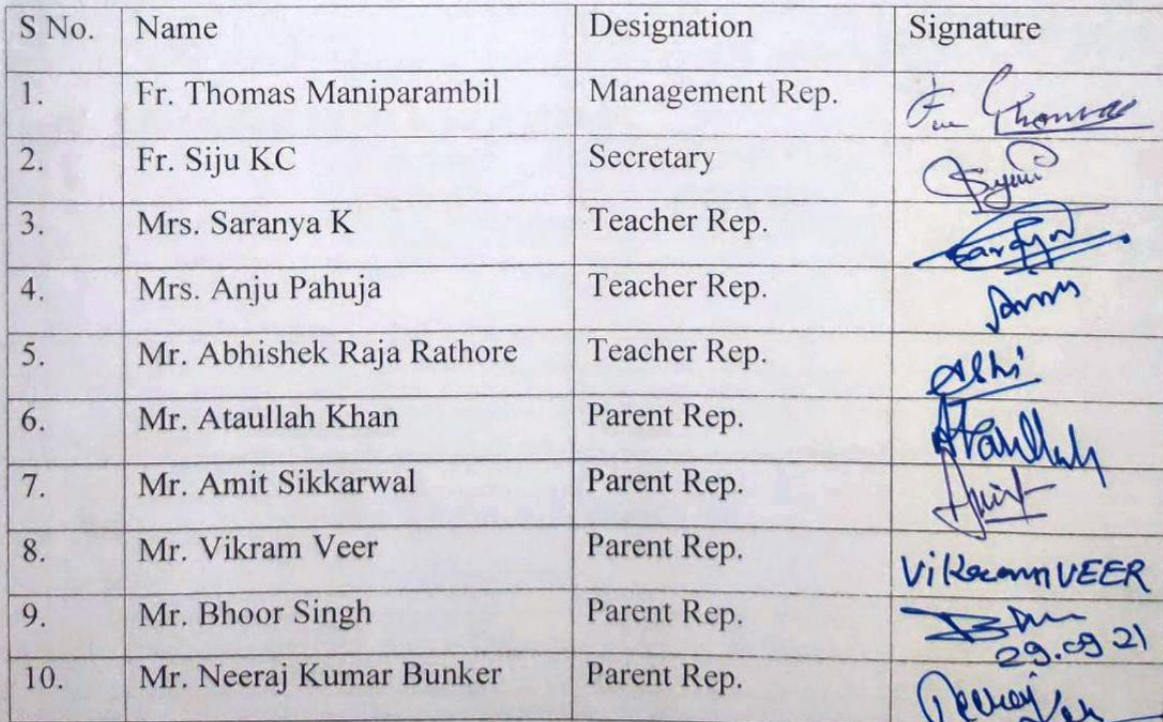 S No. Name Designation Signature
1. Fr. Thomas Maniparambil Management Rep. Fr. Thomas
2. Fr. Siju KC Secretary
3. Mrs. Saranya K Teacher Rep.
4. Mrs. Anju Pahuja Teacher Rep.
5. Mr. Abhishek Raja Rathore Teacher Rep. Abhi
6. Mr. Ataullah Khan Parent Rep. Ataullah
7. Mr. Amit Sikkarwal Parent Rep. Amit
8. Mr. Vikram Veer Parent Rep. VEER
9. Mr. Bhoor Singh Parent Rep.
29.09.21
10. Mr. Neeraj Kumar Bunker Parent Rep. Neeraj